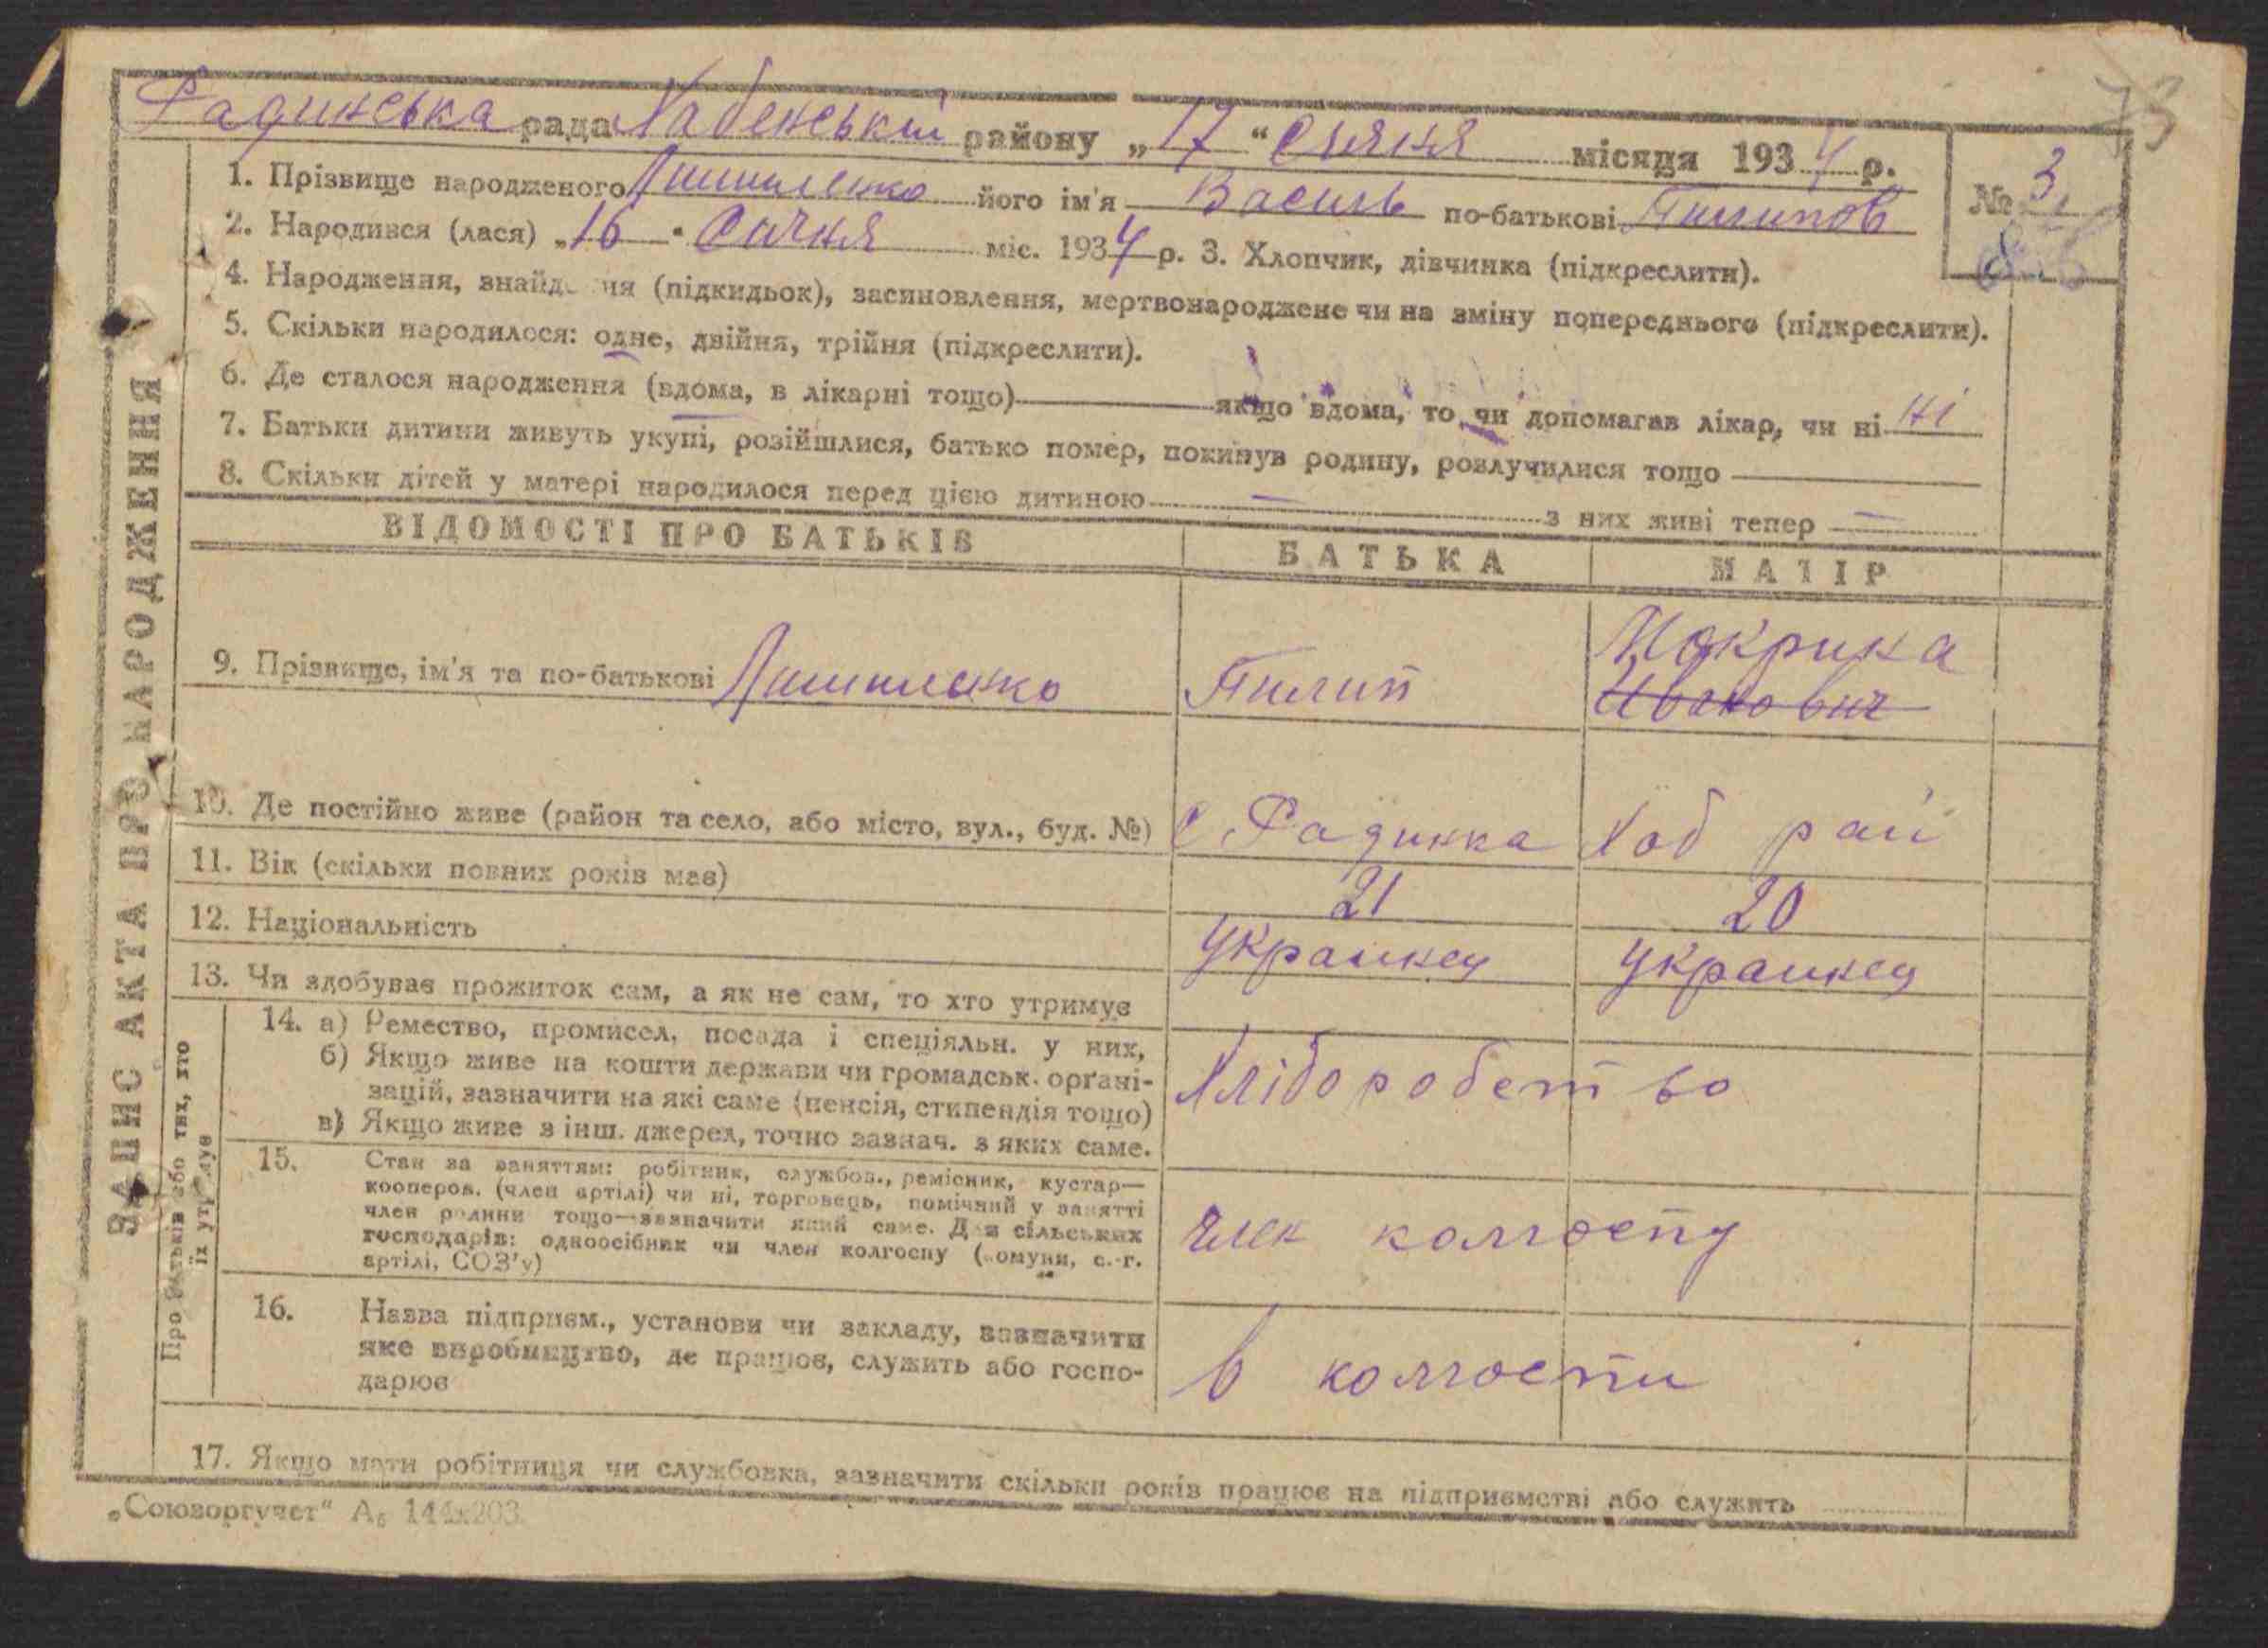 73
Радинська рада Хабенській району „17“ Січня місяця 1934 р.
№ 3
1. Прізвище народженого його ім'я Василь по-батькові Пилипов
2. Народився (лася) „16“ Січня міс. 1934 р. 3. Хлопчик, дівчинка (підкреслити).
4. Народження, знайдення (підкидьок), засиновлення, мертвонароджене чи на зміну попереднього (підкреслити).
5. Скільки народилося: одне, двійня, трійня (підкреслити).
6. Де сталося народження (вдома, в лікарні тощо) якщо вдома, то чи допомагав лікар, чи ні ні
7. Батьки дитини живуть укупі, розійшлися, батько помер, покинув родину, розлучилися тощо
8. Скільки дітей у матері народилося перед цією дитиною — з них живі тепер —
ЗАПИС АКТА ПРО НАРОДЖЕННЯ
ВІДОМОСТІ ПРО БАТЬКІВ БАТЬКА МАТІР
9. Прізвище, ім'я та по-батькові Пилип Мокрина
Иванович
10. Де постійно живе (район та село, або місто, вул., буд. №) с Радинка Хаб рай
11. Вік (скільки повних років має) 21 20
12. Національність Украинец Украинец
13. Чи здобуває прожиток сам, а як не сам, то хто утримує
Про батьків або тих, хто
їх утримує
14. а) Ремество, промисел, посада і спеціяльн. у них,
б) Якщо живе на кошти держави чи громадськ. орґані-
зацій, зазначити на які саме (пенсія, стипендія тощо)
в) Якщо живе з інш. джерел, точно зазнач. з яких саме.
Хліборобство
15. Стан за заняттям: робітник, службов., ремісник, кустар—
коопероз. (член артілі) чи ні, торговець, помічний у занятті
член родини тощо—зазначити який саме. Для сільських
господарів: одноосібник чи член колгоспу (комуни, с.-г.
артілі, СОЗ'у)
член колгоспу
16. Назва підприєм., установи чи закладу, зазначити
яке виробництво, де працює, служить або госпо-
дарює
в колгоспи
17. Якщо мати робітниця чи службовка, зазначити скільки років працює на підприємстві або служить
„Союзоргучет“ А₆ 144х203.